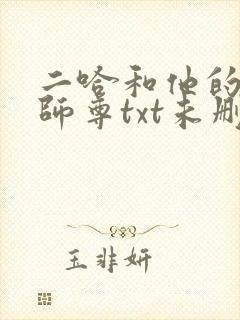 二哈和他的
師尊txt未刪
玉非妍